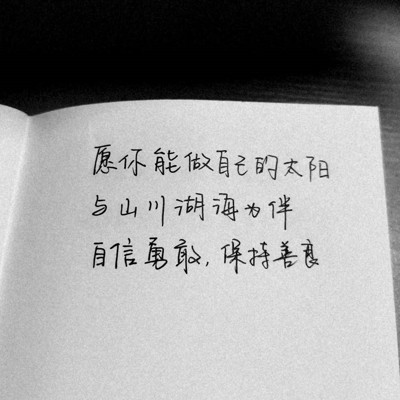 愿你能做自己的太阳
与山川湖海为伴
自信勇敢,保持善良